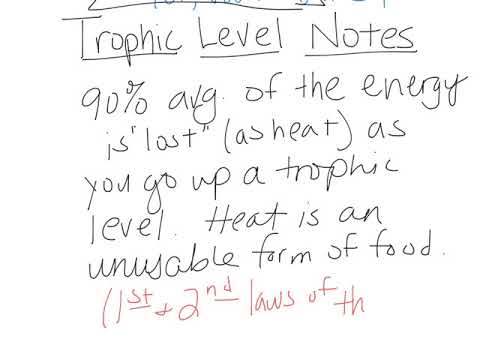 Trophic Level Notes
90% avg. of the energy
is "lost" (as heat) as
you go up a trophic
level. Heat is an
unusable form of food.
(1st + 2nd laws of th